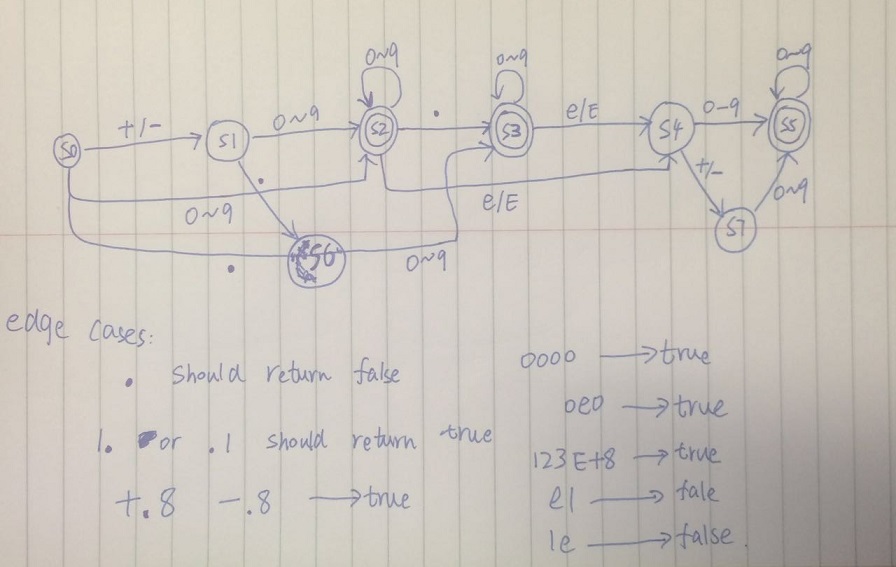 0~9 0~9 0~9
+/- 0~9 . e/E 0-9
S0 S1 S2 S3 S4 S5
. +/-
0~9 e/E 0~9
S6 S7
. 0~9
edge cases:
. should return false
1. or .1 should return true
+.8 -.8 →true
0000 →true
0e0 →true
123E+8 →true
e1 →fale
1e →false.